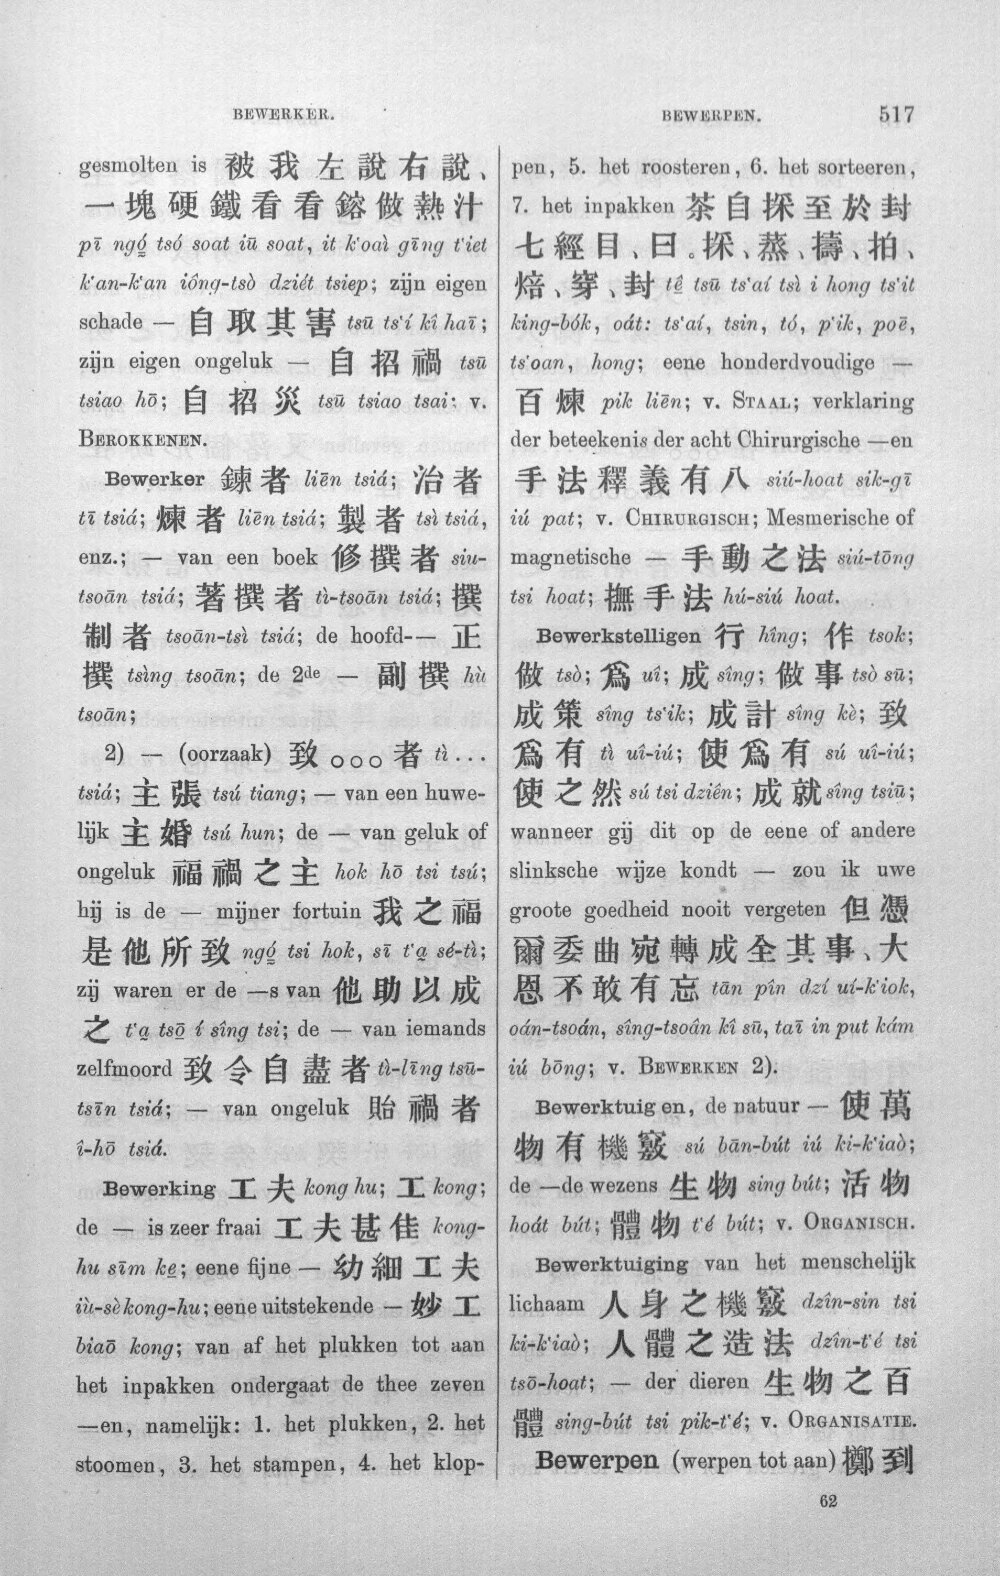 BEWERKER.
BEWERPEN.
517
gesmolten is 被我左說右說、
一塊硬鐵看看鎔做熱汁
pī ngó̤ tsó soat iū soat, it k'oaì gīng t'iet
k'an-k'an iông-tsò dziét tsiep; zijn eigen
schade — 自取其害 tsū ts'í kî haī;
zijn eigen ongeluk — 自招禍 tsū
tsiao hō; 自招災 tsū tsiao tsai: v.
BEROKKENEN.
Bewerker 鍊者 liēn tsiá; 治者
tī tsiá; 煉者 liēn tsiá; 製者 tsì tsiá,
enz.; — van een boek 修撰者 siu-
tsoān tsiá; 著撰者 tì-tsoān tsiá; 撰
制者 tsoān-tsì tsiá; de hoofd-— 正
撰 tsìng tsoān; de 2de — 副撰 hù
tsoān;
2) — (oorzaak) 致○○○者 tì ...
tsiá; 主張 tsú tiang; — van een huwe-
lijk 主婚 tsú hun; de — van geluk of
ongeluk 福禍之主 hok hō tsi tsú;
hij is de — mijner fortuin 我之福
是他所致 ngó̤ tsi hok, sī t'a̤ sé-tì;
zij waren er de —s van 他助以成
之 t'a̤ tsō̤ í sîng tsi; de — van iemands
zelfmoord 致令自盡者 tì-līng tsū-
tsīn tsiá; — van ongeluk 貽禍者
î-hō tsiá.
Bewerking 工夫 kong hu; 工 kong;
de — is zeer fraai 工夫甚佳 kong-
hu sīm ke̤; eene fijne — 幼細工夫
iù-sè kong-hu; eene uitstekende — 妙工
biaō kong; van af het plukken tot aan
het inpakken ondergaat de thee zeven
—en, namelijk: 1. het plukken, 2. het
stoomen, 3. het stampen, 4. het klop-
pen, 5. het roosteren, 6. het sorteeren,
7. het inpakken 茶自採至於封
七經目、曰。採、蒸、擣、拍、
焙、穿、封 tê̤ tsū ts'aí tsì i hong ts'it
king-bók, oát: ts'aí, tsin, tó, p'ik, poē,
ts'oan, hong; eene honderdvoudige —
百煉 pik liēn; v. STAAL; verklaring
der beteekenis der acht Chirurgische —en
手法釋義有八 siú-hoat sik-gī
iú pat; v. CHIRURGISCH; Mesmerische of
magnetische — 手動之法 siú-tōng
tsi hoat; 撫手法 hú-siú hoat.
Bewerkstelligen 行 hîng; 作 tsok;
做 tsò; 爲 uî; 成 sîng; 做事 tsò sū;
成策 sîng ts'ik; 成計 sîng kè; 致
爲有 tì uî-iú; 使爲有 sú uî-iú;
使之然 sú tsi dzién; 成就 sîng tsiū;
wanneer gij dit op de eene of andere
slinksche wijze kondt — zou ik uwe
groote goedheid nooit vergeten 但憑
爾委曲宛轉成全其事、大
恩不敢有忘 tān pîn dzí uí-k'iok,
oán-tsoán, sîng-tsoân kî sū, taī in put kám
iú bōng; v. BEWERKEN 2).
Bewerktuigen, de natuur — 使萬
物有機竅 sú bān-bút iú ki-k'iaò;
de —de wezens 生物 sing bút; 活物
hoát bút; 體物 t'é bút; v. ORGANISCH.
Bewerktuiging van het menschelijk
lichaam 人身之機竅 dzîn-sin tsi
ki-k'iaò; 人體之造法 dzîn-t'é tsi
tsō-hoat; — der dieren 生物之百
體 sing-bút tsi pik-t'é; v. ORGANISATIE.
Bewerpen (werpen tot aan) 擲到
62